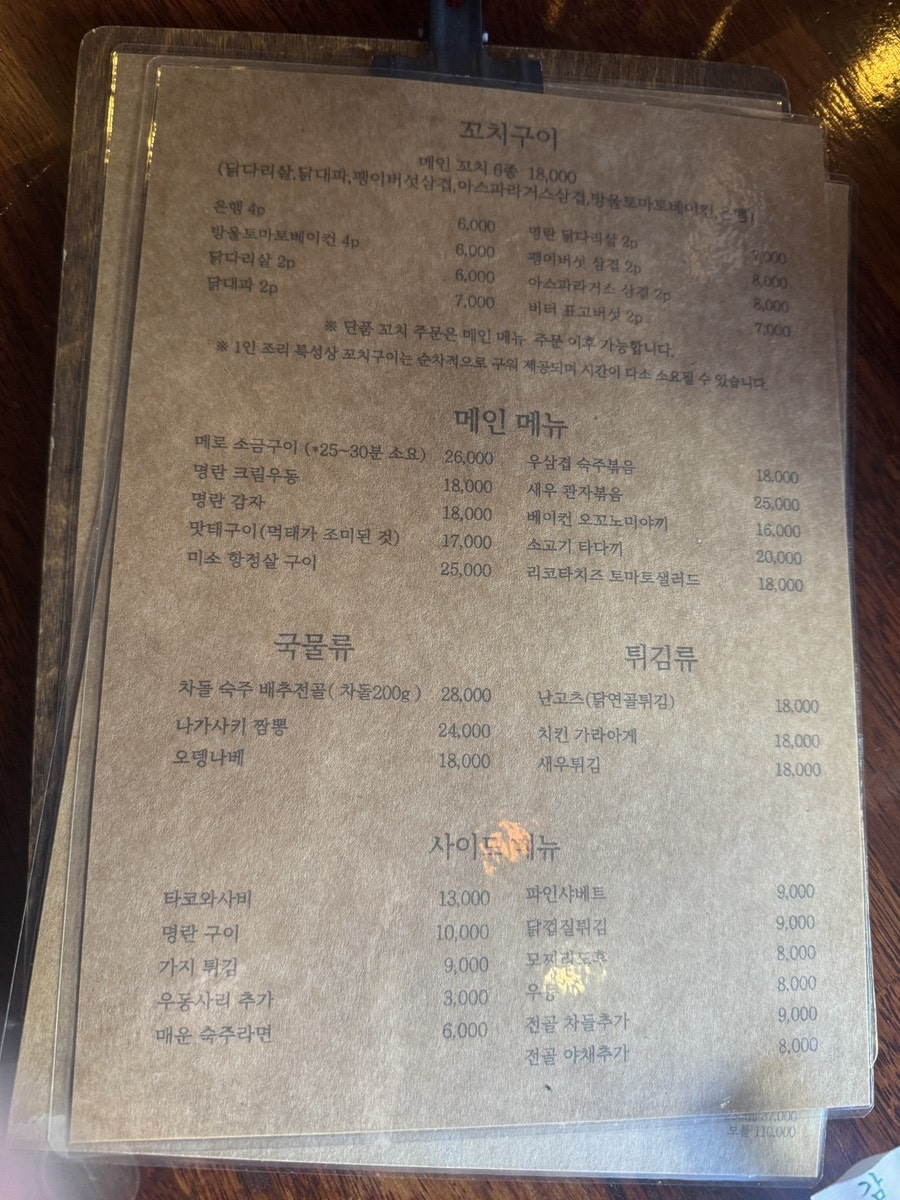 꼬치구이
메인 꼬치 6종 18,000
(닭다리살,닭대파,팽이버섯삼겹,아스파라거스삼겹,방울토마토베이컨,은행)
은행 4p 6,000
방울토마토베이컨 4p 6,000
닭다리살 2p 6,000
닭대파 2p 7,000
명란 닭다리살 2p 7,000
팽이버섯 삼겹 2p 8,000
아스파라거스 삼겹 2p 8,000
버터 표고버섯 2p 7,000
※ 단품 꼬치 주문은 메인 메뉴 주문 이후 가능합니다.
※ 1인 조리 특성상 꼬치구이는 순차적으로 구워 제공되며 시간이 다소 소요될 수 있습니다.
메인 메뉴
메로 소금구이 (*25~30분 소요) 26,000
명란 크림우동 18,000
명란 감자 18,000
맛태구이(먹태가 조미된 것) 17,000
미소 항정살 구이 25,000
우삼겹 숙주볶음 18,000
새우 관자볶음 25,000
베이컨 오꼬노미야끼 16,000
소고기 타다끼 20,000
리코타치즈 토마토샐러드 18,000
국물류
차돌 숙주 배추전골( 차돌200g ) 28,000
나가사키 짬뽕 24,000
오뎅나베 18,000
튀김류
난고츠(닭연골튀김) 18,000
치킨 가라아게 18,000
새우튀김 18,000
사이드 메뉴
타코와사비 13,000
명란 구이 10,000
가지 튀김 9,000
우동사리 추가 3,000
매운 숙주라면 6,000
파인샤베트 9,000
닭껍질튀김 9,000
모찌리도후 8,000
우동 8,000
전골 차돌추가 9,000
전골 야채추가 8,000
보틀 110,000